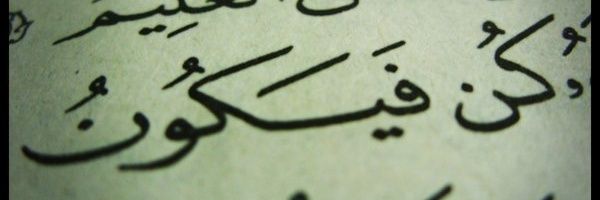 العليم
كُن فَيَكُونُ